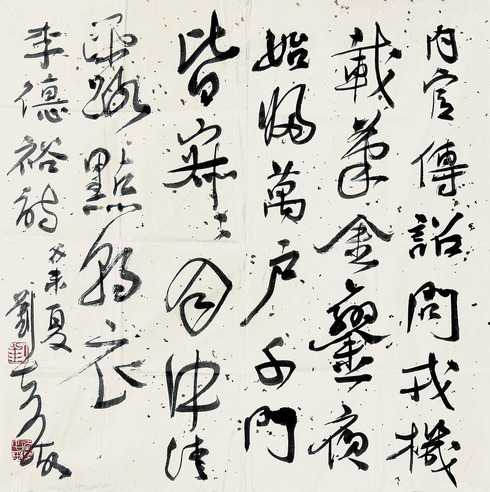 内官傳詔問戎機
載筆金鑾夜
始歸萬户千門
皆寂〻月中清
露點朝衣
李德裕詩 癸未夏 劉